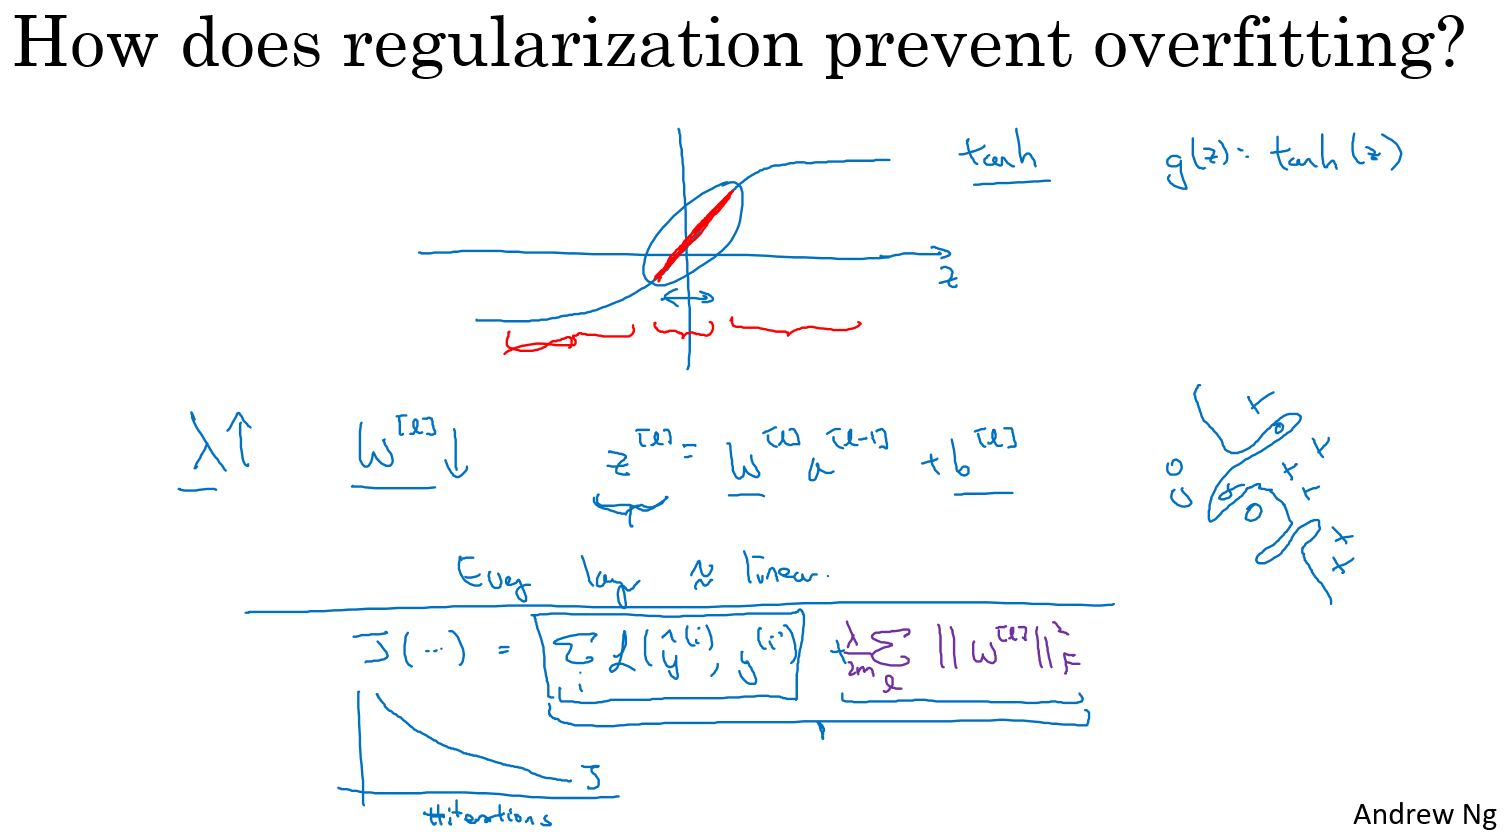 How does regularization prevent overfitting?
tanh
g(z) = tanh(z)
z
λ↑ W^[l]↓ z^[l] = W^[l] a^[l-1] + b^[l]
Every layer ≈ linear.
J(...) = Σ_i L(ŷ^(i), y^(i)) + λ/2m Σ_l ||W^[l]||²_F
J
#iterations
Andrew Ng